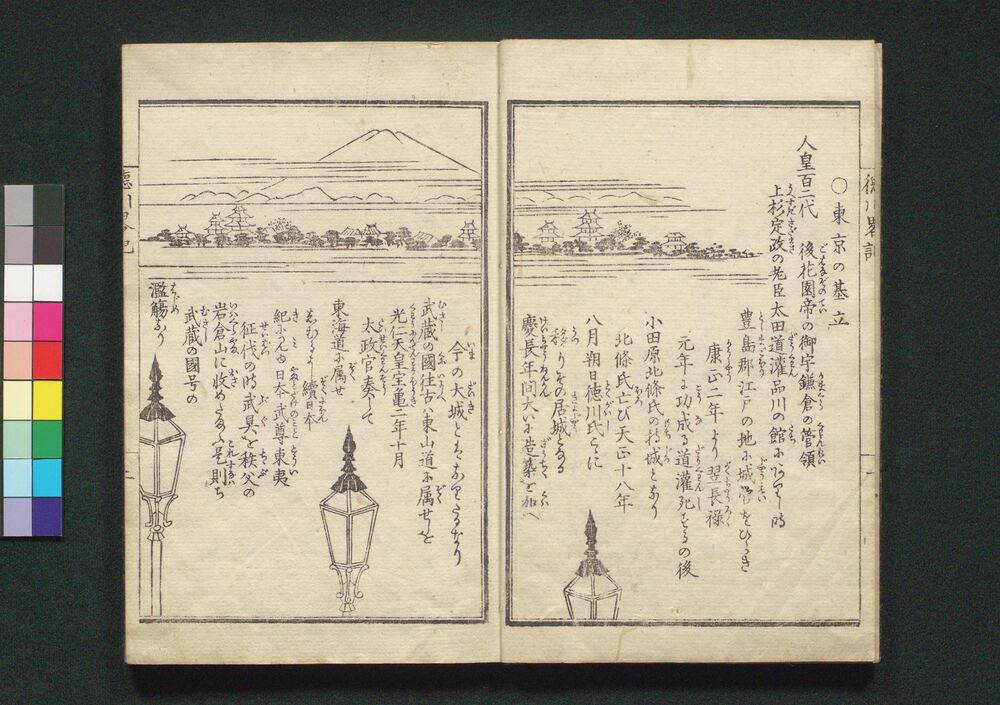 ○東京の基立
人皇百二代
後花園帝の御宇鎌倉の管領
上杉定政の老臣太田道灌品川の館に
豊島郡江戸の地に城営をひらき
康正二年より翌長禄
元年に功成る道灌死するの後
小田原北條氏の持城となり
北條氏亡び天正十八年
八月朔日徳川氏こゝに
移りその居城となる
慶長年間大いに造築を加へ
今の大城とはなりたるなり
武蔵の國往古ハ東山道に属せしを
光仁天皇宝亀二年十月
太政官奏して
東海道に属せ
しむ 續日本
紀に見ゆ日本武尊東夷
征伐の時武具を秩父の
岩倉山に收めたまふ是則ち
武蔵の國号の
濫觴なり
徳川畧記